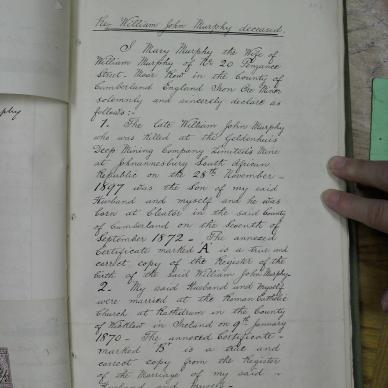 Re, William John Murphy deceased.
I Mary Murphy the Wife of
William Murphy of No 20 Penzance
Street Moor Row in the County of
Cumberland England Iron Ore Miner
solemnly and sincerely declare as
follows:-
1. The late William John Murphy
who was killed at the Geldenhuis
Deep Mining Company Limited's Mine
at Johannesburg South African
Republic on the 28th November
1897 was the Son of my said
Husband and myself and he was
born at Cleator in the said County
of Cumberland on the Seventh of
September 1872 - The annexed
Certificate marked A is a true and
correct copy of the Register of the
birth of the said William John Murphy
2. My said Husband and myself
were married at the Roman Catholic
Church at Rathdrum in the County
of Wicklow in Ireland on 9th January
1870 - The annexed Certificate -
marked B is a true and
correct copy from the Register
of the Marriage of my said -
Husband and myself -